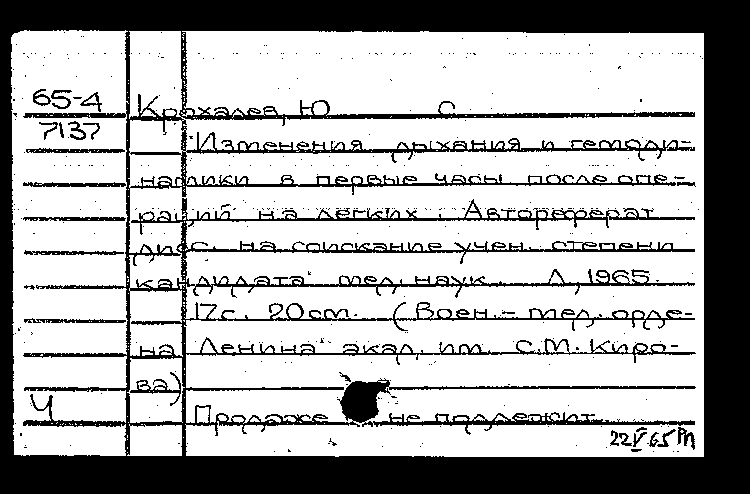 65-4 Крохалев, Ю С
7137
Изменения дыхания и гемоди-
намики в первые часы после опе-
раций на легких. Автореферат
дисс. на соискание учен. степени
кандидата мед. наук. Л., 1965.
17с. 20см. (Воен.-мед. орде-
на Ленина акад. им. С.М. Киро-
ва)
Ч
Продаже не подлежит
22 V 65